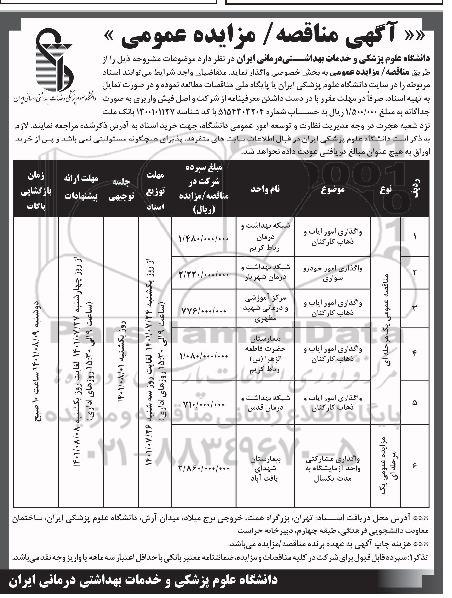 «« آگهی مناقصه/ مزایده عمومی »
دانشگاه علوم پزشکی و خدمات بهداشتی‌درمانی ایران در نظر دارد موضوعات مشروحه ذیل را از
طریق مناقصه/ مزایده عمومی به بخش خصوصی واگذار نماید. متقاضیان واجد شرایط می‌توانند اسناد
مربوطه را در سایت دانشگاه علوم پزشکی ایران یا پایگاه ملی مناقصات مطالعه نموده و در صورت تمایل
به تهیه اسناد، صرفاً در مهلت مقرر با در دست داشتن معرفینامه از شرکت و اصل فیش واریزی به صورت
جداگانه به مبلغ ۱/۵۰۰/۰۰۰ ریال به حساب شماره با کد شناسه بانک ملت
نزد شعبه هجرت در وجه مدیریت نظارت و توسعه امور عمومی دانشگاه، جهت خرید اسناد به آدرس ذکرشده مراجعه نمایند. لازم
به ذکر است دانشگاه علوم پزشکی ایران در قبال اطلاعات سایت های متفرقه، پذیرای هیچگونه مسئولیتی نمی باشد و پس از خرید
اوراق به هیچ عنوان مبالغ دریافتی عودت داده نخواهد شد.
ردیف
نوع
موضوع
نام واحد
مبلغ سپرده شرکت در مناقصه/مزایده (ریال)
مهلت توزیع اسناد
جلسه توجیهی
مهلت ارائه پیشنهادات
زمان بازگشایی پاکات
۱ واگذاری امور ایاب و ذهاب کارکنان شبکه بهداشت و درمان رباط کریم ۱/۴۸۰/۰۰۰/۰۰۰
۲ واگذاری امور خودرو سواری شبکه بهداشت و درمان شهریار ۲/۲۲۰/۰۰۰/۰۰۰
۳ واگذاری امور ایاب و ذهاب کارکنان مرکز آموزشی و درمانی شهید مطهری ۷۷۶/۰۰۰/۰۰۰
۴ واگذاری امور ایاب و ذهاب کارکنان بیمارستان حضرت فاطمه الزهرا (س) رباط کریم ۱/۰۸۰/۰۰۰/۰۰۰
۵ واگذاری امور ایاب و ذهاب کارکنان شبکه بهداشت و درمان قدس ۷۱۰/۰۰۰/۰۰۰
۶ واگذاری مشارکتی واحد آزمایشگاه به مدت یکسال بیمارستان شهدای یافت آباد ۲/۸۶۰/۰۰۰/۰۰۰
مناقصه عمومی یک مرحله‌ای
مزایده عمومی یک مرحله‌ای
از روز یکشنبه ۱۴۰۱/۰۷/۲۴ لغایت روز سه شنبه ۱۴۰۱/۰۷/۲۶
(ساعت ۹ الی ۱۵:۳۰ روزهای اداری)
روز یکشنبه ۱۴۰۱/۰۸/۰۱
از روز چهارشنبه ۱۴۰۱/۰۷/۲۷ لغایت روز یکشنبه ۱۴۰۱/۰۸/۰۸
(ساعت ۹ الی ۱۵:۳۰ روزهای اداری)
دوشنبه ۱۴۰۱/۰۸/۰۹ ساعت ۱۰ صبح
ParsNamadData
۰۲۱-۸۸۳۴۹۶۷۰-۵
*** آدرس محل دریافت اسناد: تهران، بزرگراه همت، خروجی برج میلاد، میدان آرش، دانشگاه علوم پزشکی ایران، ساختمان
معاونت دانشجویی فرهنگی، طبقه چهارم، دبیرخانه حراست
*** هزینه چاپ آگهی به عهده برنده مناقصه/مزایده می‌باشد.
تذکر۱: سپرده قابل قبول برای شرکت در کلیه مناقصات و مزایده، ضمانتنامه معتبر بانکی با حداقل اعتبار سه ماهه یا واریز وجه نقد می‌باشد.
دانشگاه علوم پزشکی و خدمات بهداشتی درمانی ایران